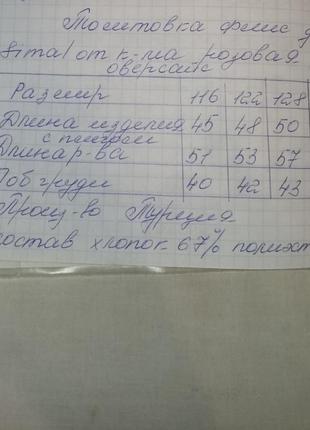 Толстовка флис д
gital от к-та розовая
оверсайс
Размер 116 122 128
Длина изделия 45 48 50
Длина рук-ва с плечом 51 53 57
Поб груди 40 42 43
Произ-во Турция
состав хлопок 67% полиэст